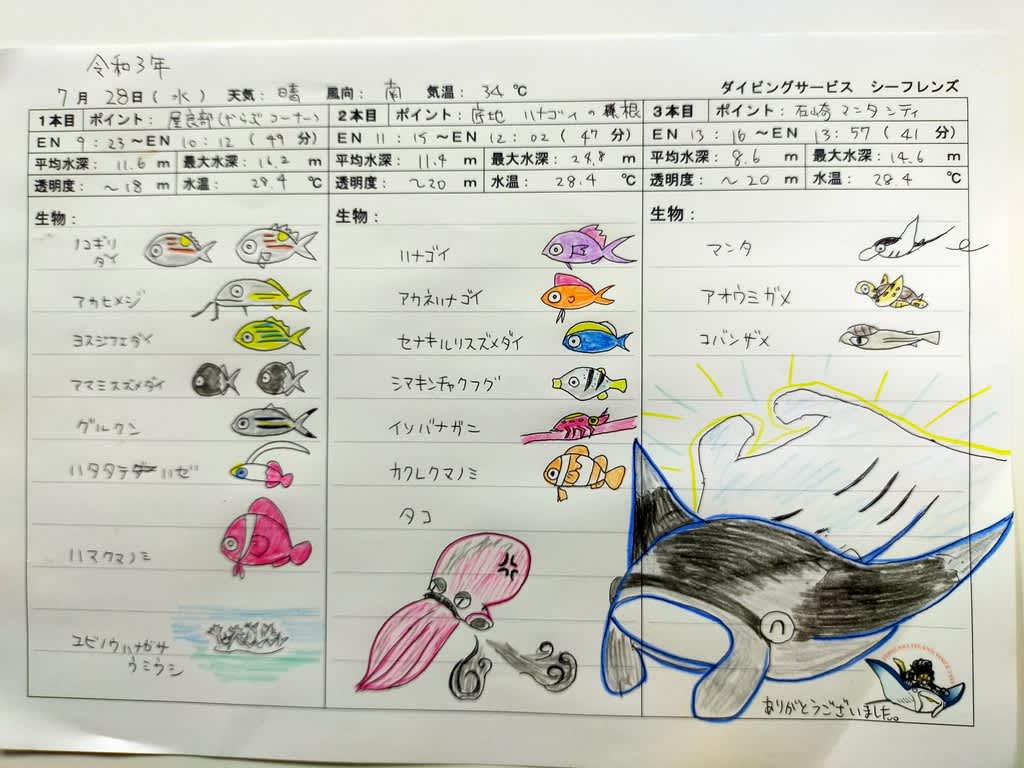 令和3年
7月 28日(水) 天気:晴 風向:南 気温:34℃
ダイビングサービス シーフレンズ
1本目 ポイント:屋良部(やらぶコーナー)
EN 9:23~EN 10:12(49分)
平均水深:11.6m 最大水深:16.2m
透明度:~18m 水温:28.4℃
生物:
ノコギリ
ダイ
アカヒメジ
ヨスジフエダイ
アマミスズメダイ
グルクン
ハタタテハゼ
ハマクマノミ
ユビノウハナガサ
ウミウシ
2本目 ポイント:底地 ハナゴイの根
EN 11:15~EN 12:02(47分)
平均水深:11.4m 最大水深:24.8m
透明度:~20m 水温:28.4℃
生物:
ハナゴイ
アカネハナゴイ
セナキルリスズメダイ
シマキンチャクフグ
イソバナガニ
カクレクマノミ
タコ
3本目 ポイント:石崎マンタシティ
EN 13:16~EN 13:57(41分)
平均水深:8.6m 最大水深:14.6m
透明度:~20m 水温:28.4℃
生物:
マンタ
アオウミガメ
コバンザメ
ありがとうございました。